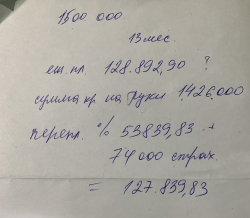 1500 000
13 мес.
еш. пл. 128.892,90 ?
сумма кр на руки 1.426.000
перепл. % 53839,83 +
74 000 страх.
= 127.839,83